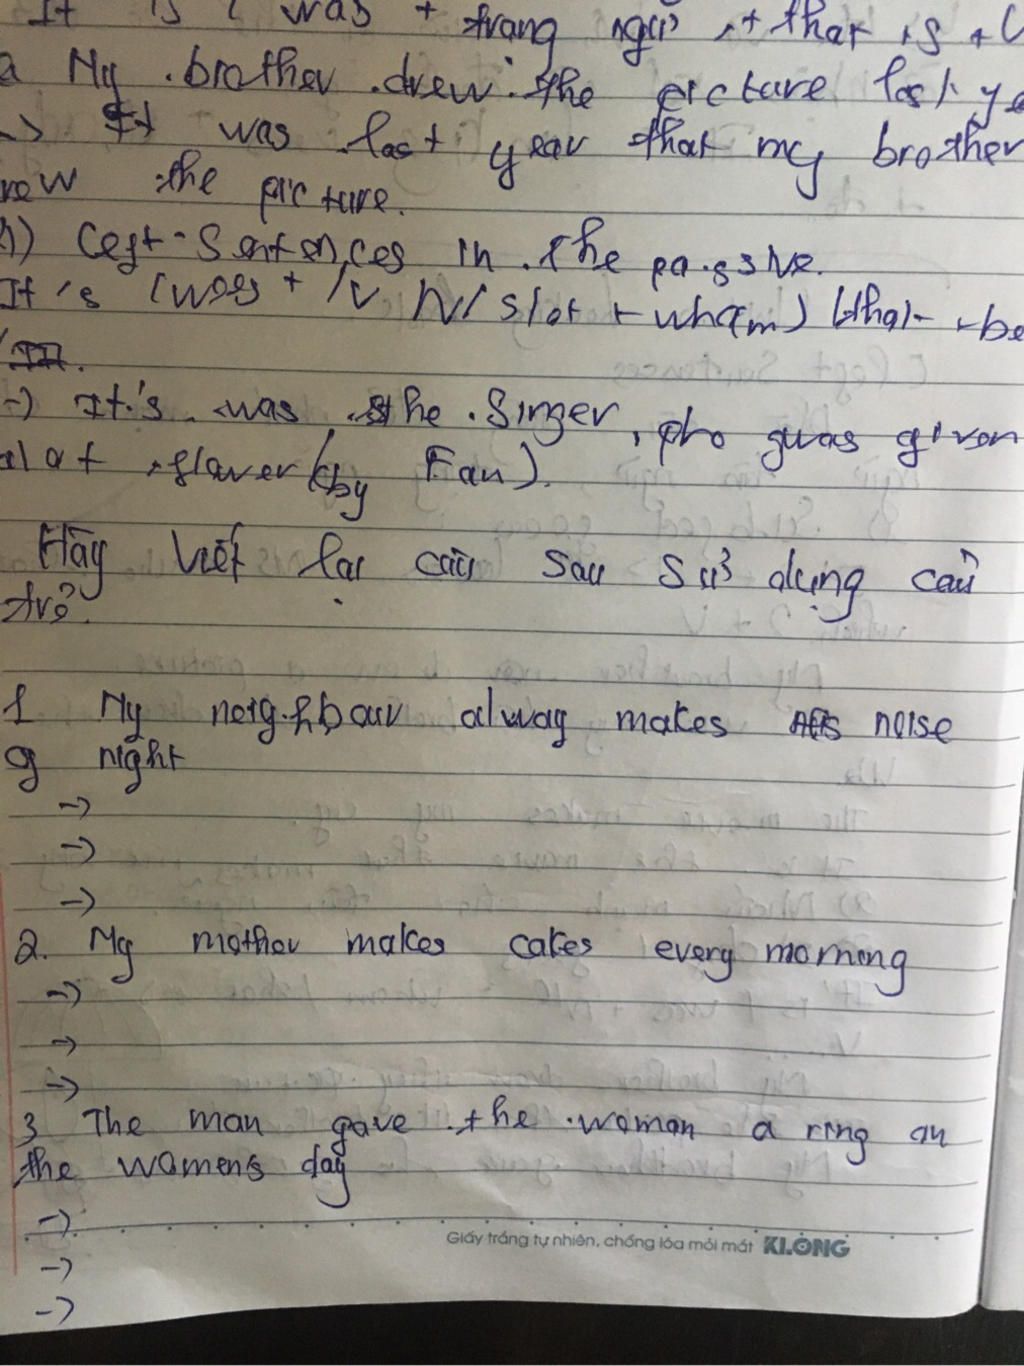 It is ( was + trạng ngữ + that + S + V
a My brother drew the picture last ye
-> It was last year that my brother
rew the picture.
4) Ceft-Sentences in the passive.
It's (was + N/ slot + wh(m) (that- +be
-) It's was the Singer, pho was given
alot flaver (by Fan).
Hãy viết lại câu sau sử dụng câu
trẻ.
1 My neighbour alway makes noise
g night
->
->
->
2. My mother makes cakes every morning
->
->
->
3 The man gave the woman a ring on
the womens day
->
->
->
Giấy trắng tự nhiên, chống lóa mỏi mắt KLONG